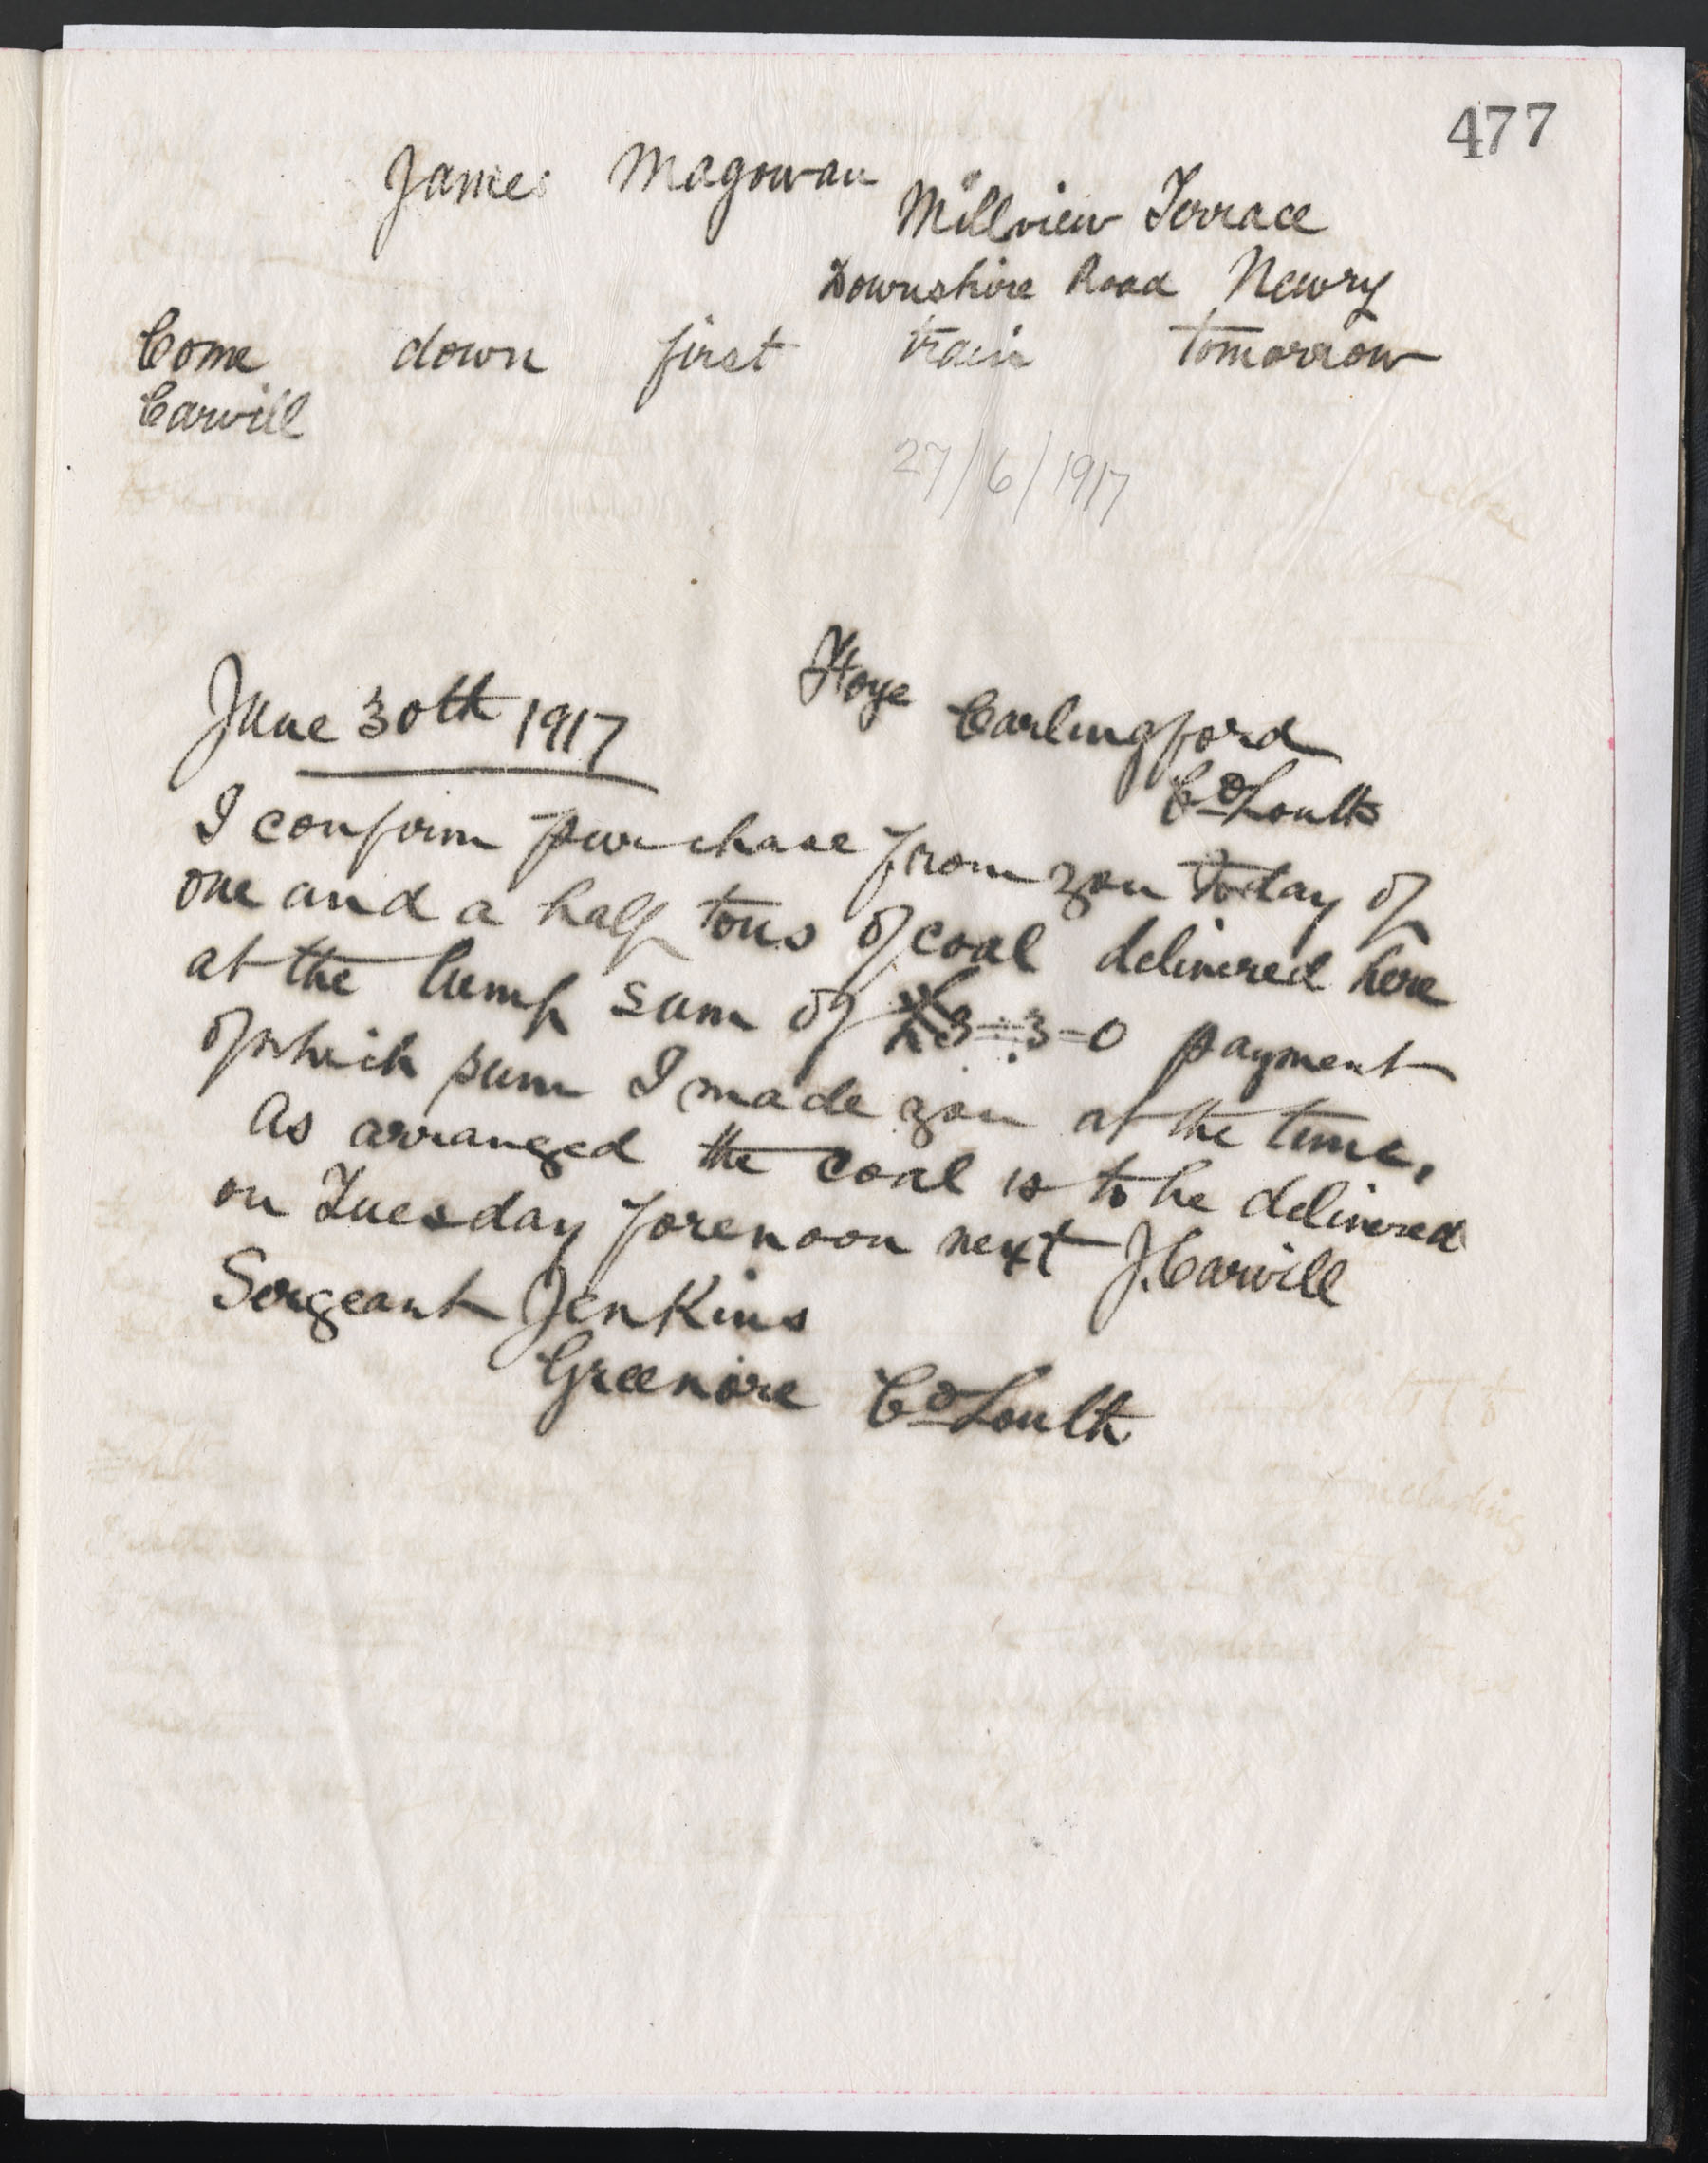 477
James Magowan
Millview Terrace
Downshire Road Newry
Come down first train tomorrow
Carvill
27/6/1917
Carlingford
June 30th 1917
Co Louth
I confirm purchase from you today of
one and a half tons of coal delivered here
at the lump sum of £3=3=0 payment
of which sum I made you at the time.
As arranged the coal is to be delivered
on Tuesday forenoon next J. Carvill
Sergeant Jenkins
Greenore Co Louth